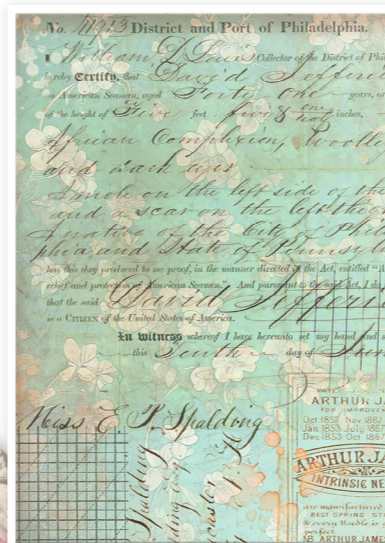 No. 4193 District and Port of Philadelphia.
I William D Lewis Collector of the District of Phil
hereby Certify, that David Jefferi
an American Seaman, aged Forty one years, or
of the height of Five feet five & one half inches,
African Complexion, Woolly
and dark eyes
A mole on the left side of the
and a scar on the left
A native of the City of Phil
phia and State of Pennsyl
has this day produced to me proof, in the manner directed in the Act, entitled "A
relief and protection of American Seamen." And pursuant to the said Act, I do
that the said David Jefferi
is a CITIZEN of the United States of America.
In witness whereof I have hereunto set my hand and
this Tenth day of
Miss E. P. Spalding
Spalding
ARTHUR JA
FOR IMPROVE
Oct 1852 Nov 1862
Jan 1853 July 1867
Dec 1853 Oct 1867
ARTHUR JA
INTRINSIC NE
are manufactured
BEST SPRING ST
& every Needle is
perfect
NB ARTHUR JAME